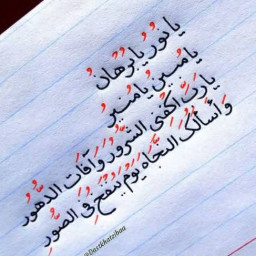 يا نُورُ يا بُرْهانُ
يا مُبينُ يا مُنيرُ
يا رَبِّ اكْفِنى الشُّرُورَ وَ آفاتِ الدُّهُورِ
وَ أَسْأَلُكَ النَّجاةَ يَوْمَ يُنْفَخُ فِى الصُّورِ
@Dastkhatziban